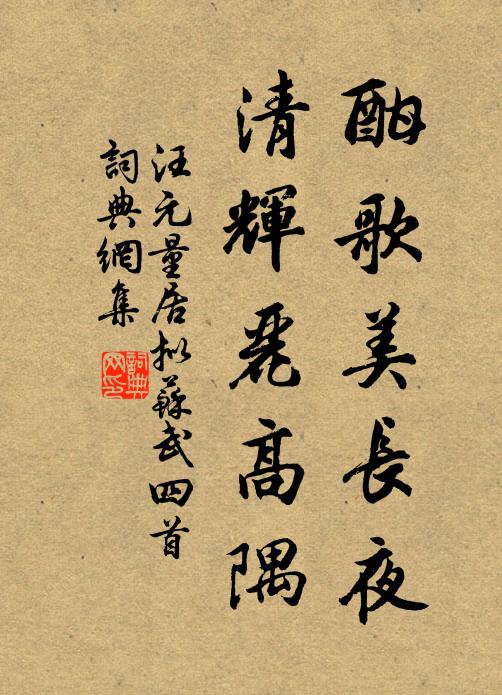 酣歌美長夜
清輝麗高隅
汪元量居擬蘇武四首
詞典網集
詞典網印